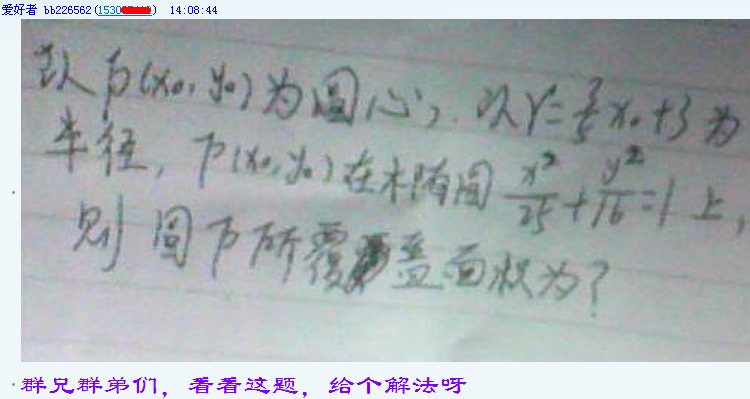 爱好者 bb226562(153 ) 14:08:44
以P(x₀,y₀)为圆心, 以r=3/5x₀+3为
半径, P(x₀,y₀)在椭圆 x²/25+y²/16=1上,
则圆P所覆盖面积为?
群兄群弟们，看看这题，给个解法呀